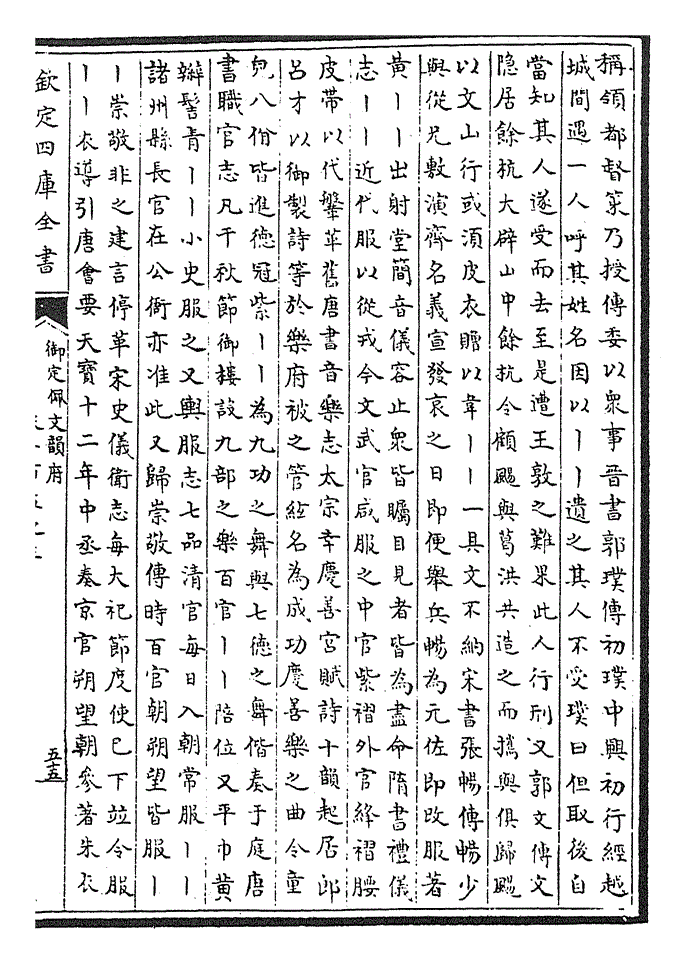 稱領都督策乃授傳委以衆事晉書郭璞傳初璞中興初行經越
城間遇一人呼其姓名因以〡〡遺之其人不受璞曰但取後自
當知其人遂受而去至是遭王敦之難果此人行刑又郭文傳文
隐居餘杭大辟山中餘杭令顧颺與葛洪共造之而攜與俱歸颺
以文山行或須皮衣贈以韋〡〡一具文不納宋書張暢傳暢少
與從兄敷演齊名義宣發哀之日即便舉兵暢為元佐即改服著
黄〡〡出射堂簡音儀容止衆皆矚目見者皆為盡命隋書禮儀
志〡〡近代服以從戎今文武官咸服之中官紫褶外官絳褶腰
皮帶以代鞶革舊唐書音樂志太宗幸慶善宮賦詩十韻起居郎
呂才以御製詩等於樂府被之管絃名為成功慶善樂之曲令童
兒八佾皆進德冠紫〡〡為九功之舞與七德之舞偕奏于庭唐
書職官志凡千秋節御樓設九部之樂百官〡〡陪位又平巾黄
辮髻青〡〡小史服之又輿服志七品清官每日入朝常服〡〡
諸州縣長官在公衙亦准此又歸崇敬傳時百官朝朔望皆服〡
〡崇敬非之建言停革宋史儀衛志每大祀節度使已下竝令服
〡〡衣導引唐會要天寶十二年中丞奏京官朔望朝參著朱衣
欽定四庫全書
御定佩文韻府
五五